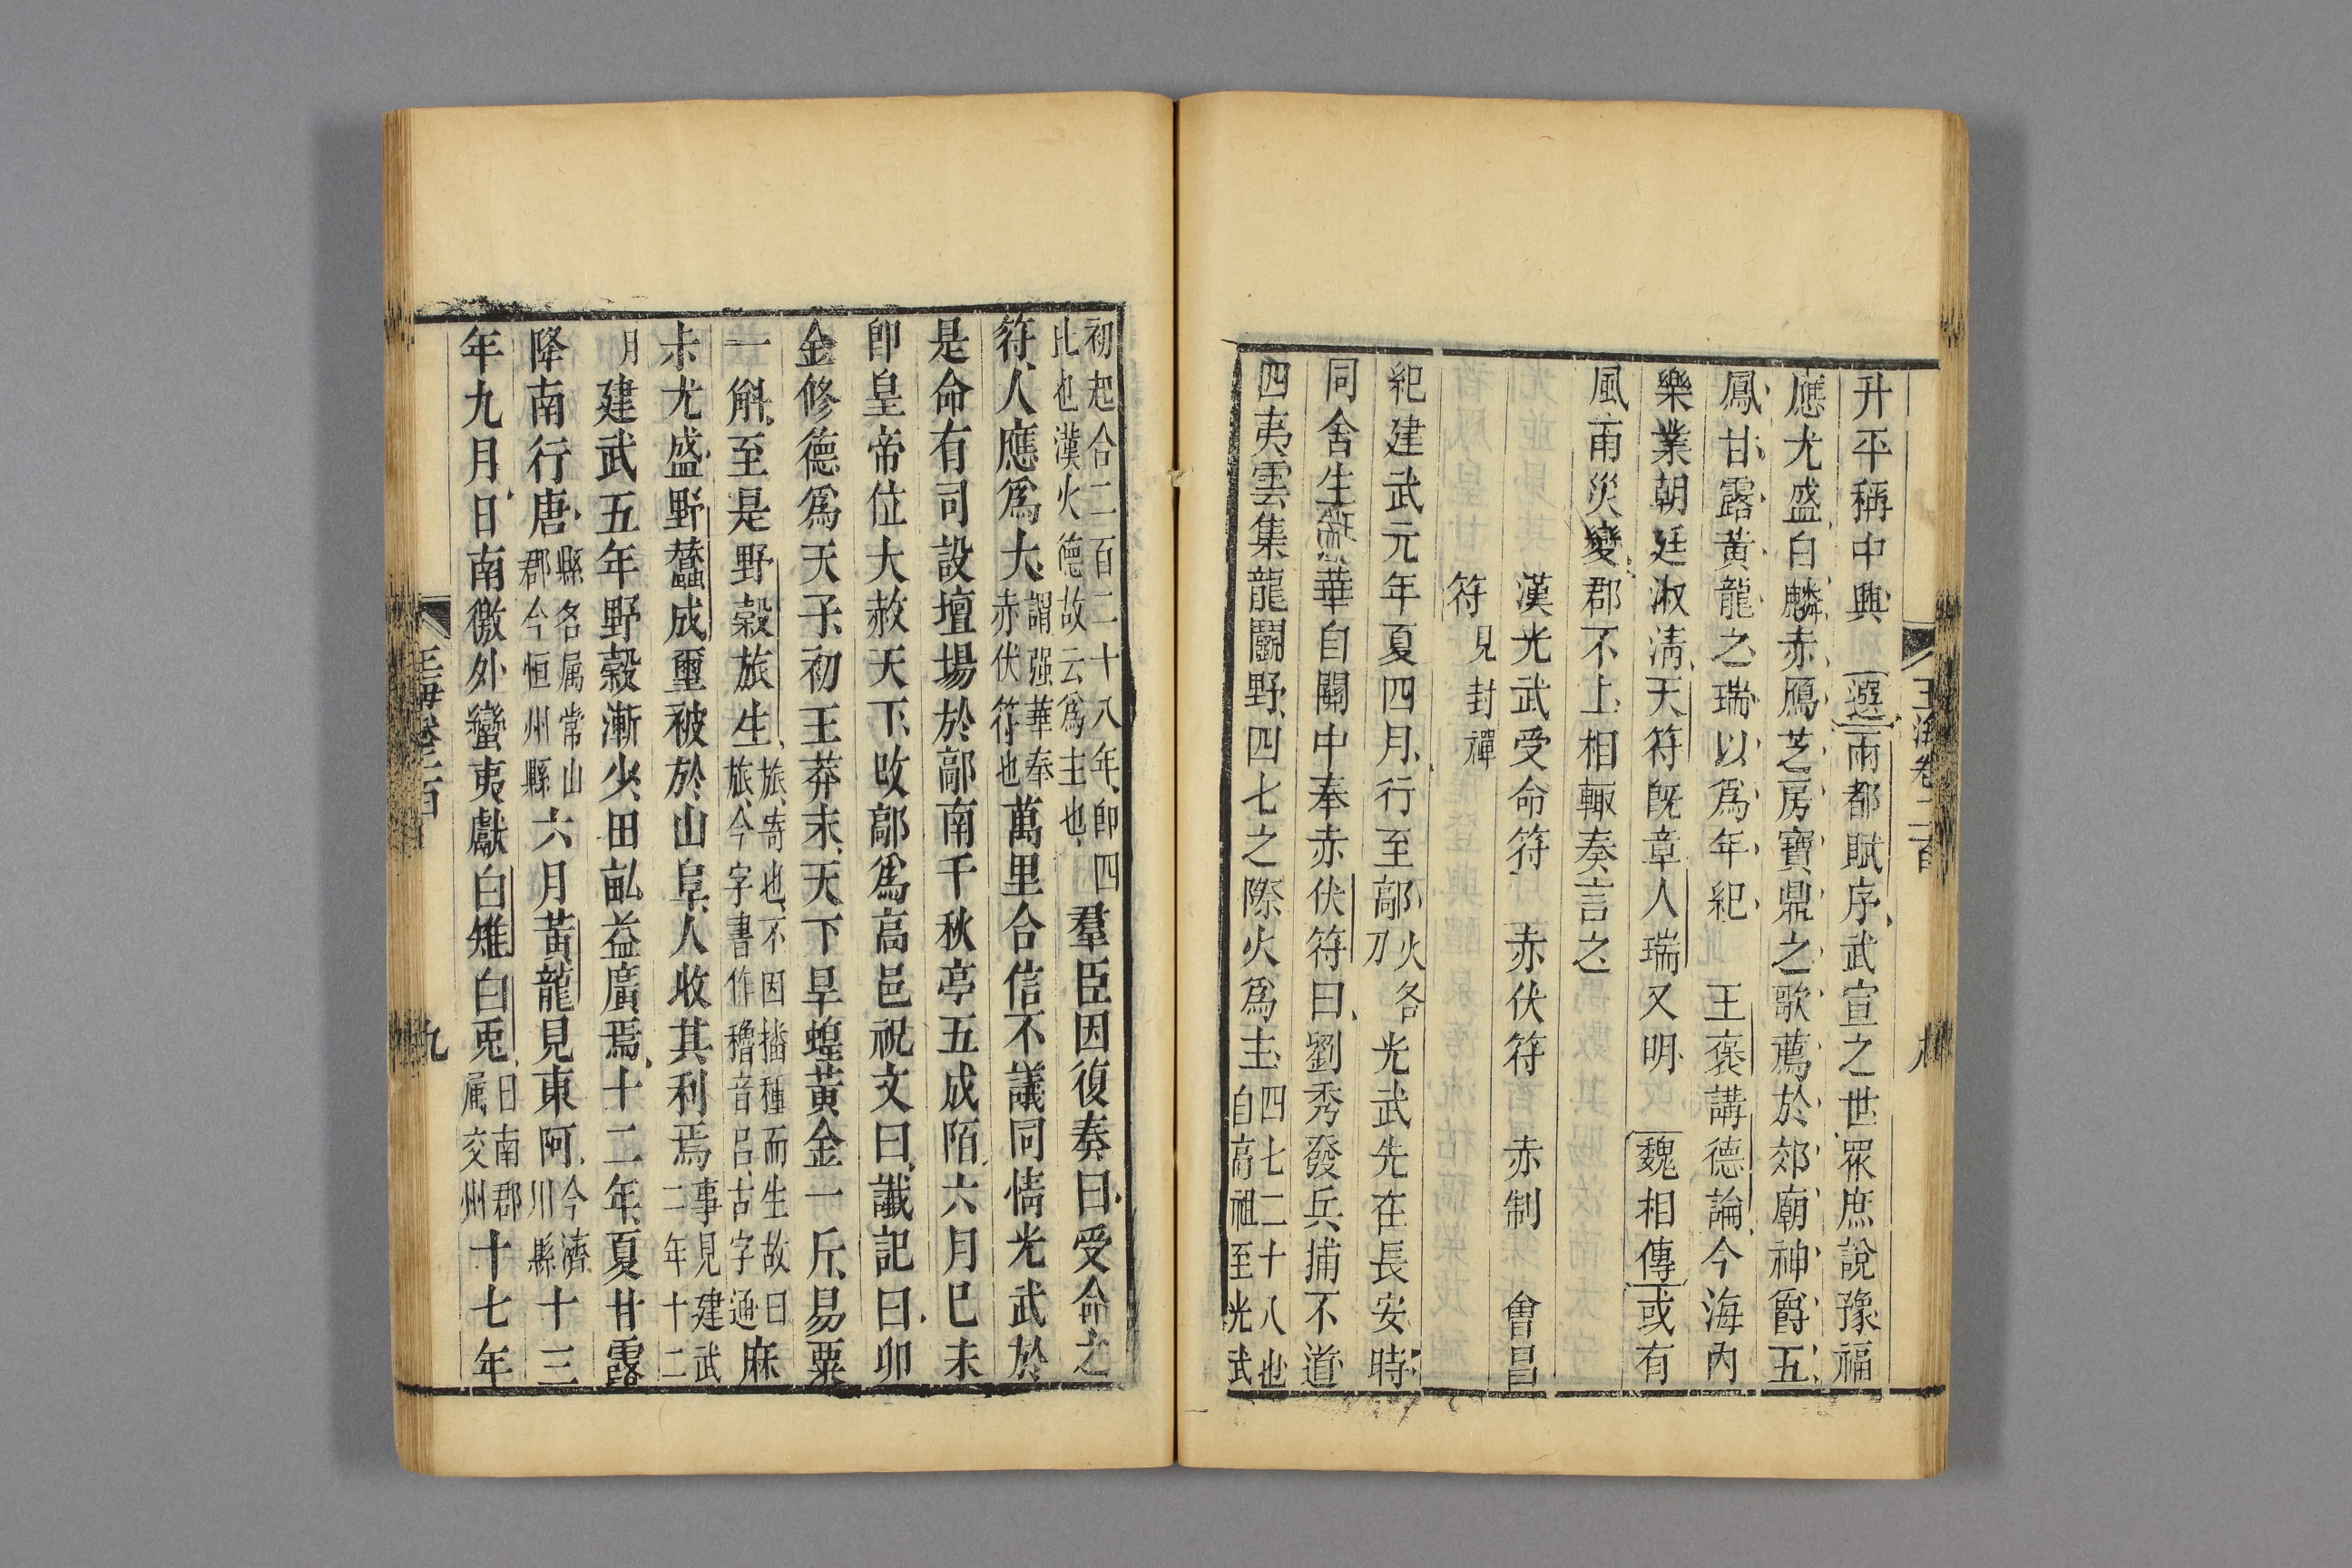 玉海卷二百
升平稱中興 選兩都賦序武宣之世眾庶說豫福
應尤盛白麟赤鴈芝房寶鼎之歌薦於郊廟神爵五
鳳甘露黃龍之瑞以爲年紀 王褒講德論今海內
樂業朝廷淑清天符旣章人瑞又明 魏相傳或有
風雨災變郡不上相輒奏言之
漢光武受命符 赤伏符 赤制 會昌
符見封禪
紀建武元年夏四月行至鄗火各
刀光武先在長安時
同舍生彊華自關中奉赤伏符曰劉秀發兵捕不道
四夷雲集龍鬭野四七之際火爲主四七二十八也
自高祖至光武
初起合二百二十八年卽四
七也漢火德故云爲主也羣臣因復奏曰受命之
符人應爲大謂强華奉
赤伏符也萬里合信不議同情光武於
是命有司設壇場於鄗南千秋亭五成陌六月已未
卽皇帝位大赦天下改鄗爲高邑祝文曰讖記曰卯
金修德爲天子初王莽末天下旱蝗黃金一斤易粟
一斛至是野穀旅生旅寄也不因播種而生故曰
旅今字書作穭音呂古字通麻
尗尤盛野蠶成璽被於山阜人收其利焉事見建武
二年十二
月建武五年野穀漸少田畝益廣焉十二年夏甘露
降南行唐縣名属常山
郡今恒州縣六月黃龍見東阿今濟
州縣十三
年九月日南徼外蠻夷獻白雉白兎日南郡
属交州十七年
玉海卷二百
九